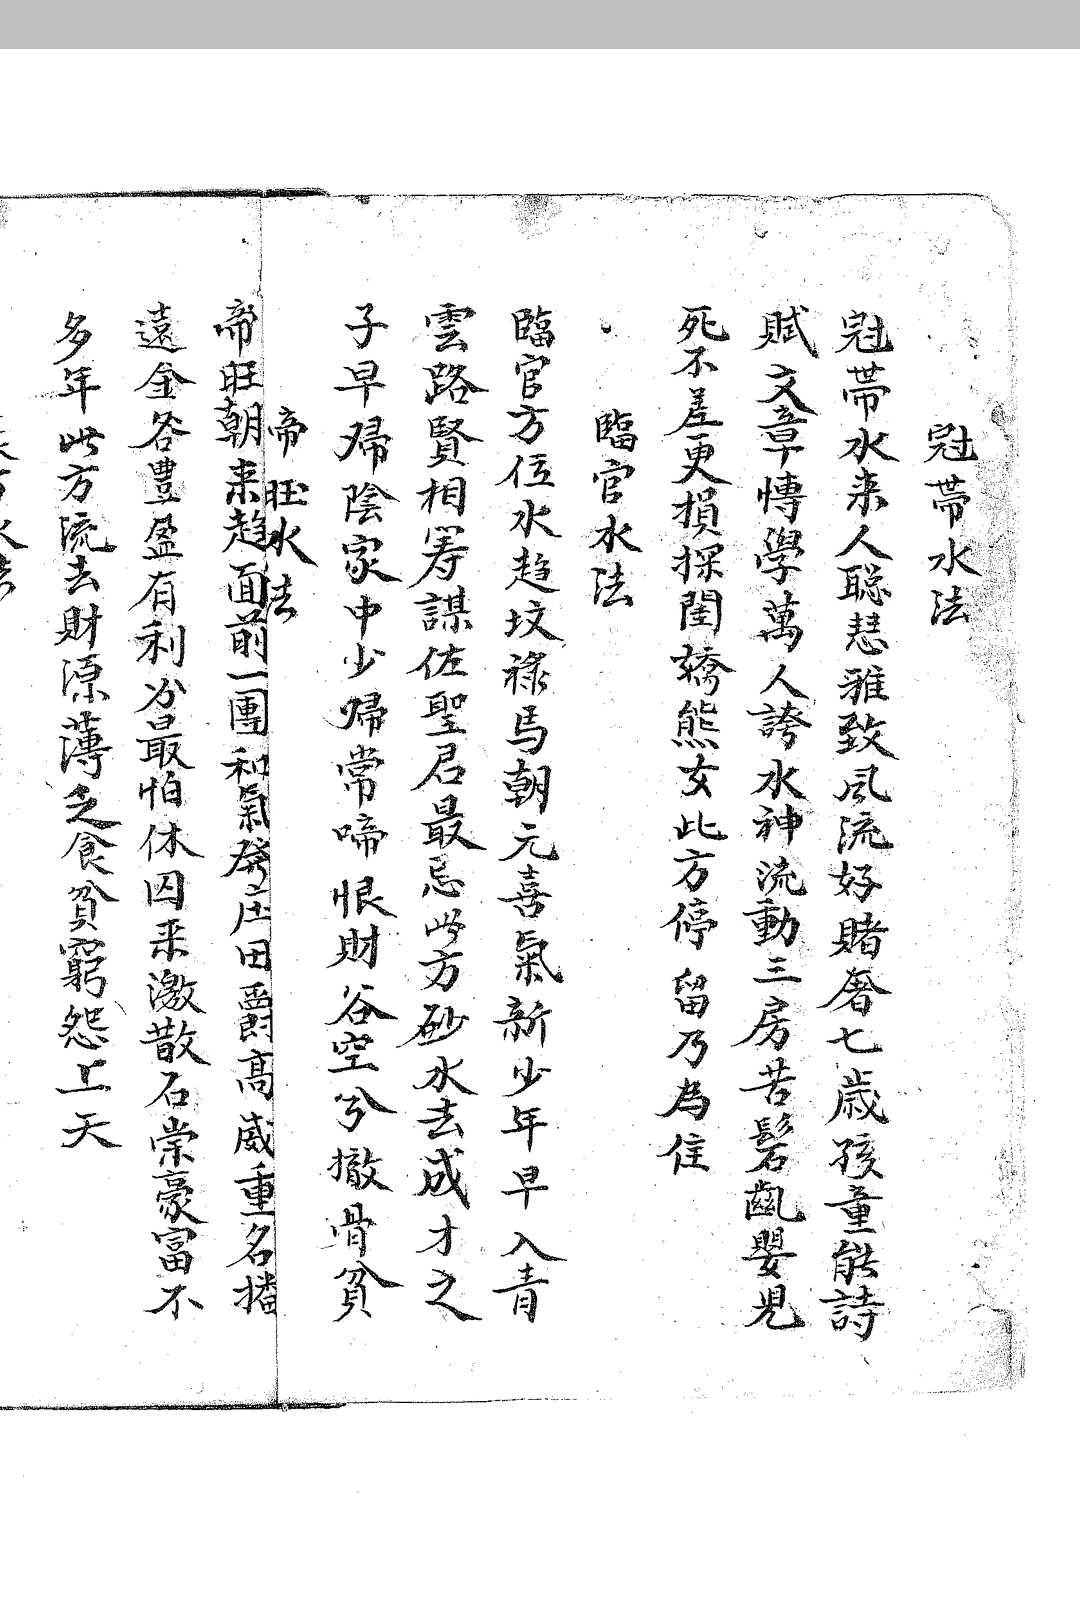 冠帶水法
冠帶水来人聡慧雅致風流好賭奢七歳孩童能詩
賦文章愽學萬人誇水神流動三房苦髫齓嬰児
死不差更損採閨嬌熊女此方停留乃為住
臨官水法
臨官方位水趋坟禄馬朝元喜氣新少年早入青
雲路賢相筹謀佐聖君最忌此方砂水去成才之
子早歸陰家中少歸常啼恨財谷空兮撤骨貧
帝旺水法
帝旺朝来趋面前一團和氣發庄田爵高威重名播
遠金谷豊盈有利分最怕休囚来激散石崇豪富不
多年此方流去財源薄乏食貧窮怨上天